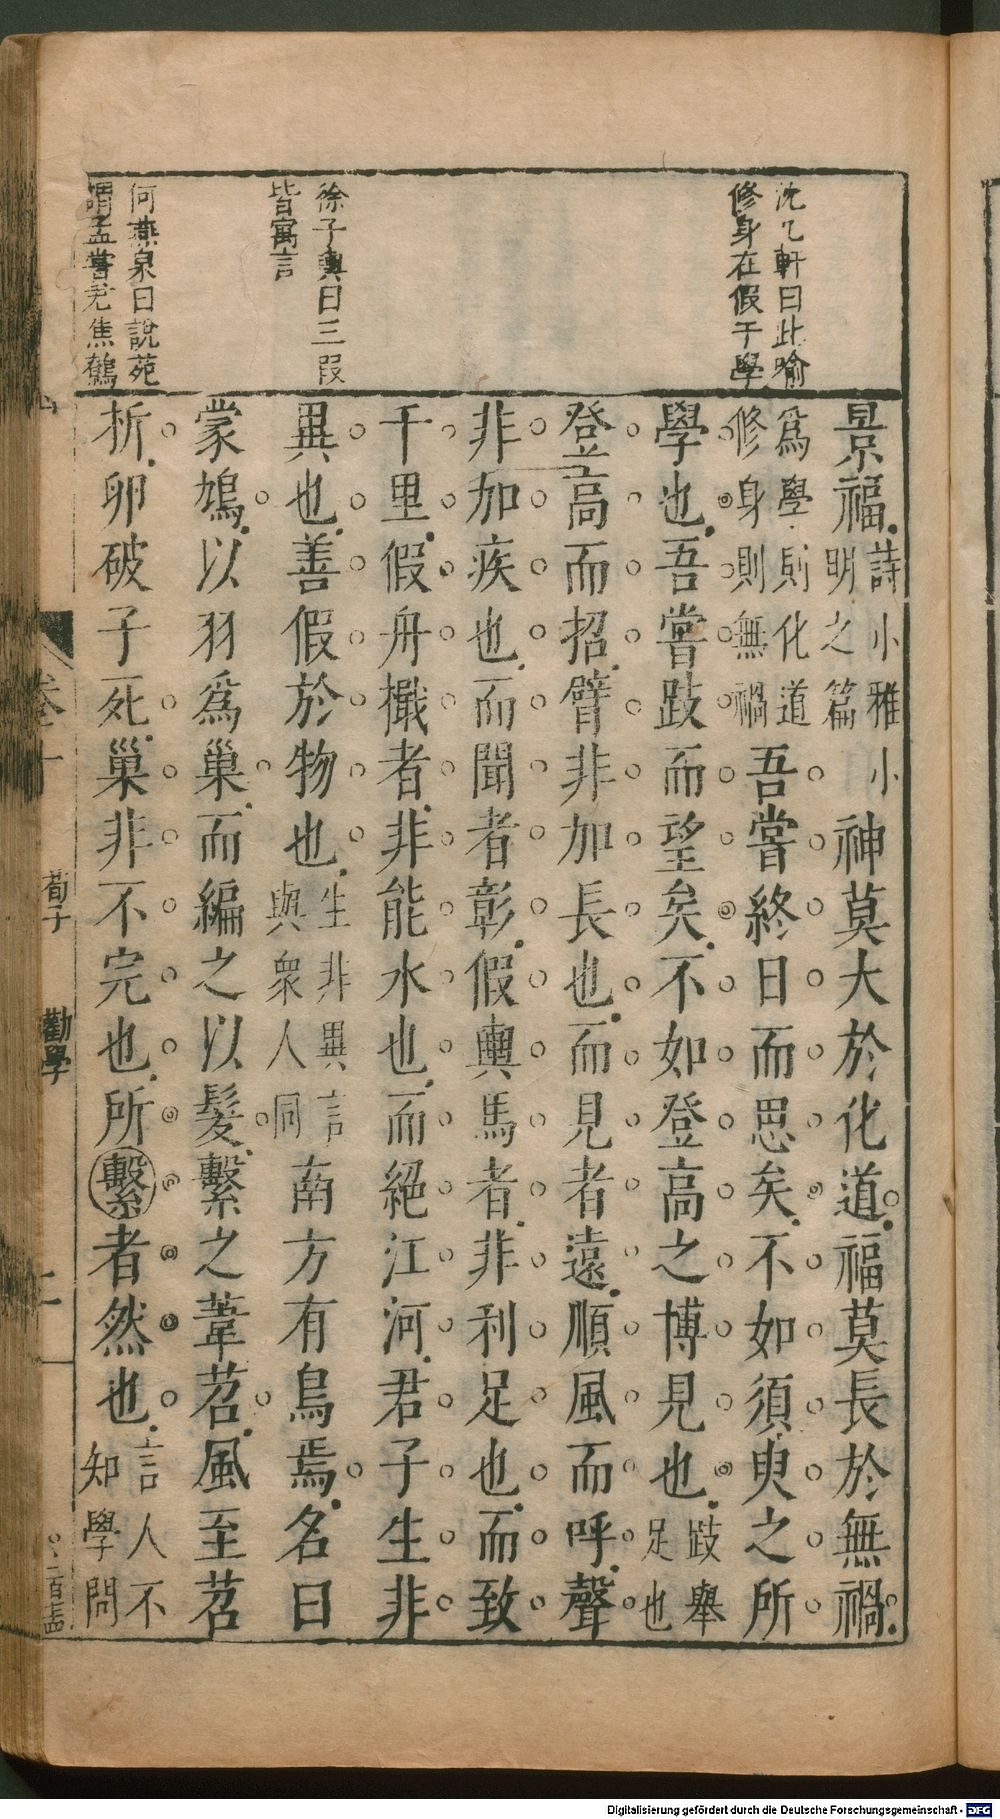 沈乙軒曰此喻
修身在假于學
徐子輿曰三假
皆寓言
何燕泉曰說苑
謂孟嘗君焦鷦
景福詩小雅小明之篇神莫大於化道福莫長於無禍
爲學則化道修身則無禍吾嘗終日而思矣不如須臾之所
學也吾嘗跂而望矣不如登高之博見也跂舉足也
登高而招臂非加長也而見者遠順風而呼聲
非加疾也而聞者彰假輿馬者非利足也而致
千里假舟檝者非能水也而絕江河君子生非
異也善假於物也生非異言與衆人同南方有鳥焉名曰
蒙鳩以羽爲巢而編之以髮繫之葦苕風至苕
折卵破子死巢非不完也所繫者然也言人不知學問
卷十
荀子
勸學
二
Digitalisierung gefördert durch die Deutsche Forschungsgemeinschaft - DFG